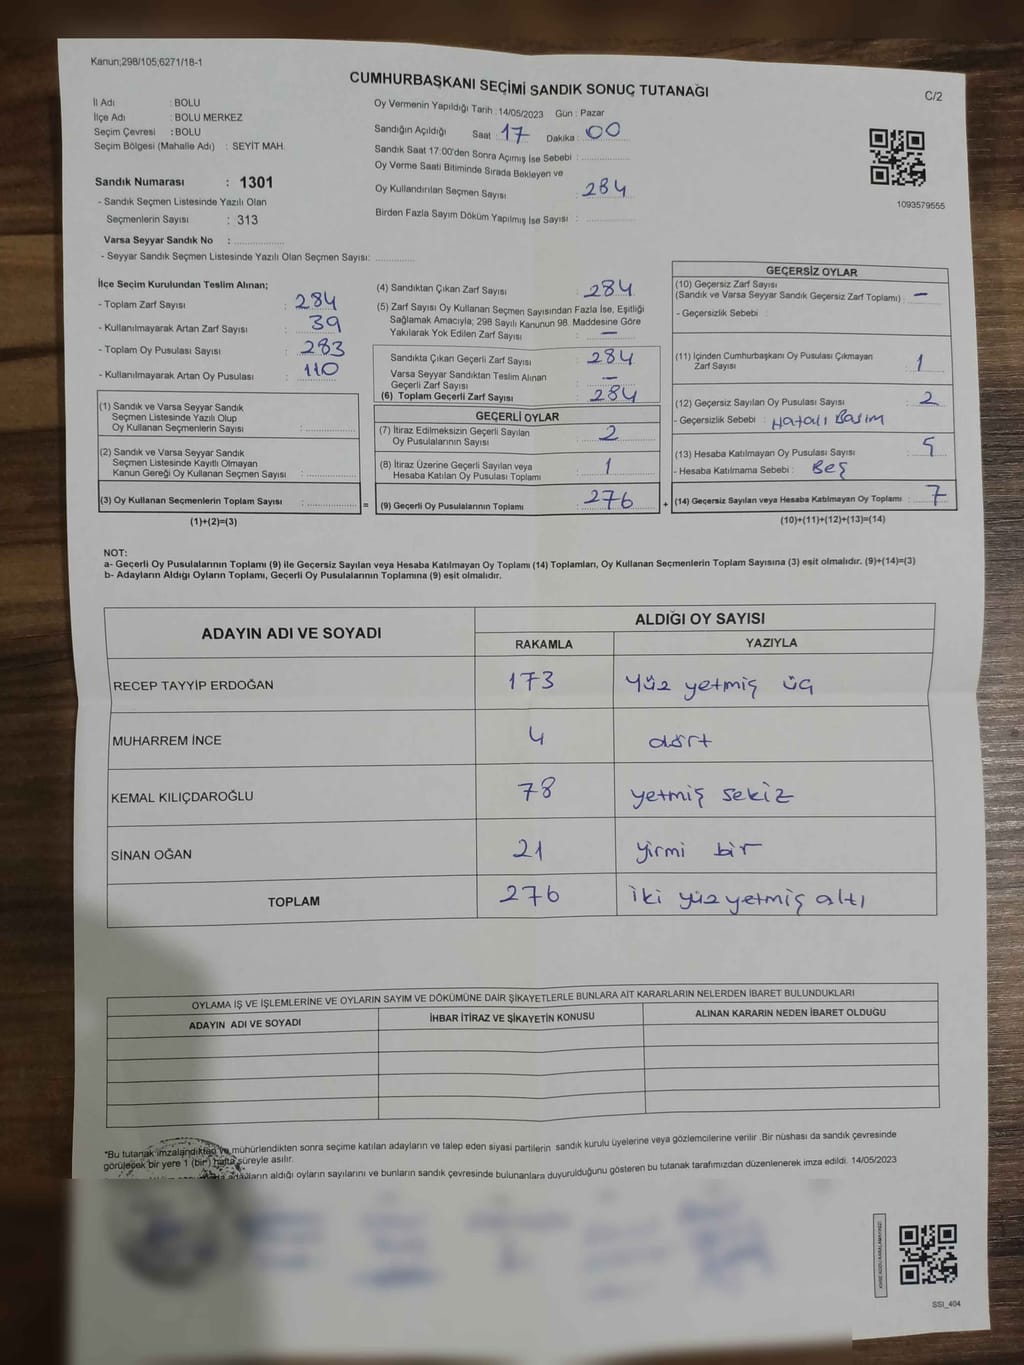 Kanun;298/105;6271/18-1
CUMHURBAŞKANI SEÇİMİ SANDIK SONUÇ TUTANAĞI
C/2
İl Adı : BOLU
İlçe Adı : BOLU MERKEZ
Seçim Çevresi : BOLU
Seçim Bölgesi (Mahalle Adı) : SEYİT MAH.
Sandık Numarası : 1301
- Sandık Seçmen Listesinde Yazılı Olan
Seçmenlerin Sayısı : 313
Varsa Seyyar Sandık No :
- Seyyar Sandık Seçmen Listesinde Yazılı Olan Seçmen Sayısı:
Oy Vermenin Yapıldığı Tarih : 14/05/2023 Gün : Pazar
Sandığın Açıldığı Saat : 17 Dakika : 00
Sandık Saat 17:00'den Sonra Açımış İse Sebebi :
Oy Verme Saati Bitiminde Sırada Bekleyen ve
Oy Kullandırılan Seçmen Sayısı : 284
Birden Fazla Sayım Döküm Yapılmış İse Sayısı :
1093579555
İlçe Seçim Kurulundan Teslim Alınan;
- Toplam Zarf Sayısı : 284
- Kullanılmayarak Artan Zarf Sayısı : 39
- Toplam Oy Pusulası Sayısı : 283
- Kullanılmayarak Artan Oy Pusulası : 110
(1) Sandık ve Varsa Seyyar Sandık
Seçmen Listesinde Yazılı Olup
Oy Kullanan Seçmenlerin Sayısı :
(2) Sandık ve Varsa Seyyar Sandık
Seçmen Listesinde Kayıtlı Olmayan
Kanun Gereği Oy Kullanan Seçmen Sayısı :
(3) Oy Kullanan Seçmenlerin Toplam Sayısı : =
(1)+(2)=(3)
(4) Sandıktan Çıkan Zarf Sayısı : 284
(5) Zarf Sayısı Oy Kullanan Seçmen Sayısından Fazla İse, Eşitliği
Sağlamak Amacıyla; 298 Sayılı Kanunun 98. Maddesine Göre
Yakılarak Yok Edilen Zarf Sayısı : —
Sandıkta Çıkan Geçerli Zarf Sayısı : 284
Varsa Seyyar Sandıktan Teslim Alınan
Geçerli Zarf Sayısı : —
(6) Toplam Geçerli Zarf Sayısı : 284
GEÇERLİ OYLAR
(7) İtiraz Edilmeksizin Geçerli Sayılan
Oy Pusulalarının Sayısı : 2
(8) İtiraz Üzerine Geçerli Sayılan veya
Hesaba Katılan Oy Pusulası Toplamı : 1
(9) Geçerli Oy Pusulalarının Toplamı : 276 +
GEÇERSİZ OYLAR
(10) Geçersiz Zarf Sayısı
(Sandık ve Varsa Seyyar Sandık Geçersiz Zarf Toplamı) : —
- Geçersizlik Sebebi :
(11) İçinden Cumhurbaşkanı Oy Pusulası Çıkmayan
Zarf Sayısı : 1
(12) Geçersiz Sayılan Oy Pusulası Sayısı : 2
- Geçersizlik Sebebi : Hatalı Basım
(13) Hesaba Katılmayan Oy Pusulası Sayısı : 5
- Hesaba Katılmama Sebebi : Beş
(14) Geçersiz Sayılan veya Hesaba Katılmayan Oy Toplamı : 7
(10)+(11)+(12)+(13)=(14)
NOT:
a- Geçerli Oy Pusulalarının Toplamı (9) ile Geçersiz Sayılan veya Hesaba Katılmayan Oy Toplamı (14) Toplamları, Oy Kullanan Seçmenlerin Toplam Sayısına (3) eşit olmalıdır. (9)+(14)=(3)
b- Adayların Aldığı Oyların Toplamı, Geçerli Oy Pusulalarının Toplamına (9) eşit olmalıdır.
ADAYIN ADI VE SOYADI
ALDIĞI OY SAYISI
RAKAMLA YAZIYLA
RECEP TAYYİP ERDOĞAN 173 Yüz yetmiş üç
MUHARREM İNCE 4 dört
KEMAL KILIÇDAROĞLU 78 yetmiş sekiz
SİNAN OĞAN 21 yirmi bir
TOPLAM 276 iki yüz yetmiş altı
OYLAMA İŞ VE İŞLEMLERİNE VE OYLARIN SAYIM VE DÖKÜMÜNE DAİR ŞİKAYETLERLE BUNLARA AİT KARARLARIN NELERDEN İBARET BULUNDUKLARI
ADAYIN ADI VE SOYADI İHBAR İTİRAZ VE ŞİKAYETİN KONUSU ALINAN KARARIN NEDEN İBARET OLDUĞU
*Bu tutanak imzalandıktan ve mühürlendikten sonra seçime katılan adayların ve talep eden siyasi partilerin sandık kurulu üyelerine veya gözlemcilerine verilir .Bir nüshası da sandık çevresinde
görülecek bir yere 1 (bir) hafta süreyle asılır.
adayların aldığı oyların sayılarını ve bunların sandık çevresinde bulunanlara duyurulduğunu gösteren bu tutanak tarafımızdan düzenlenerek imza edildi. 14/05/2023
SSI_404